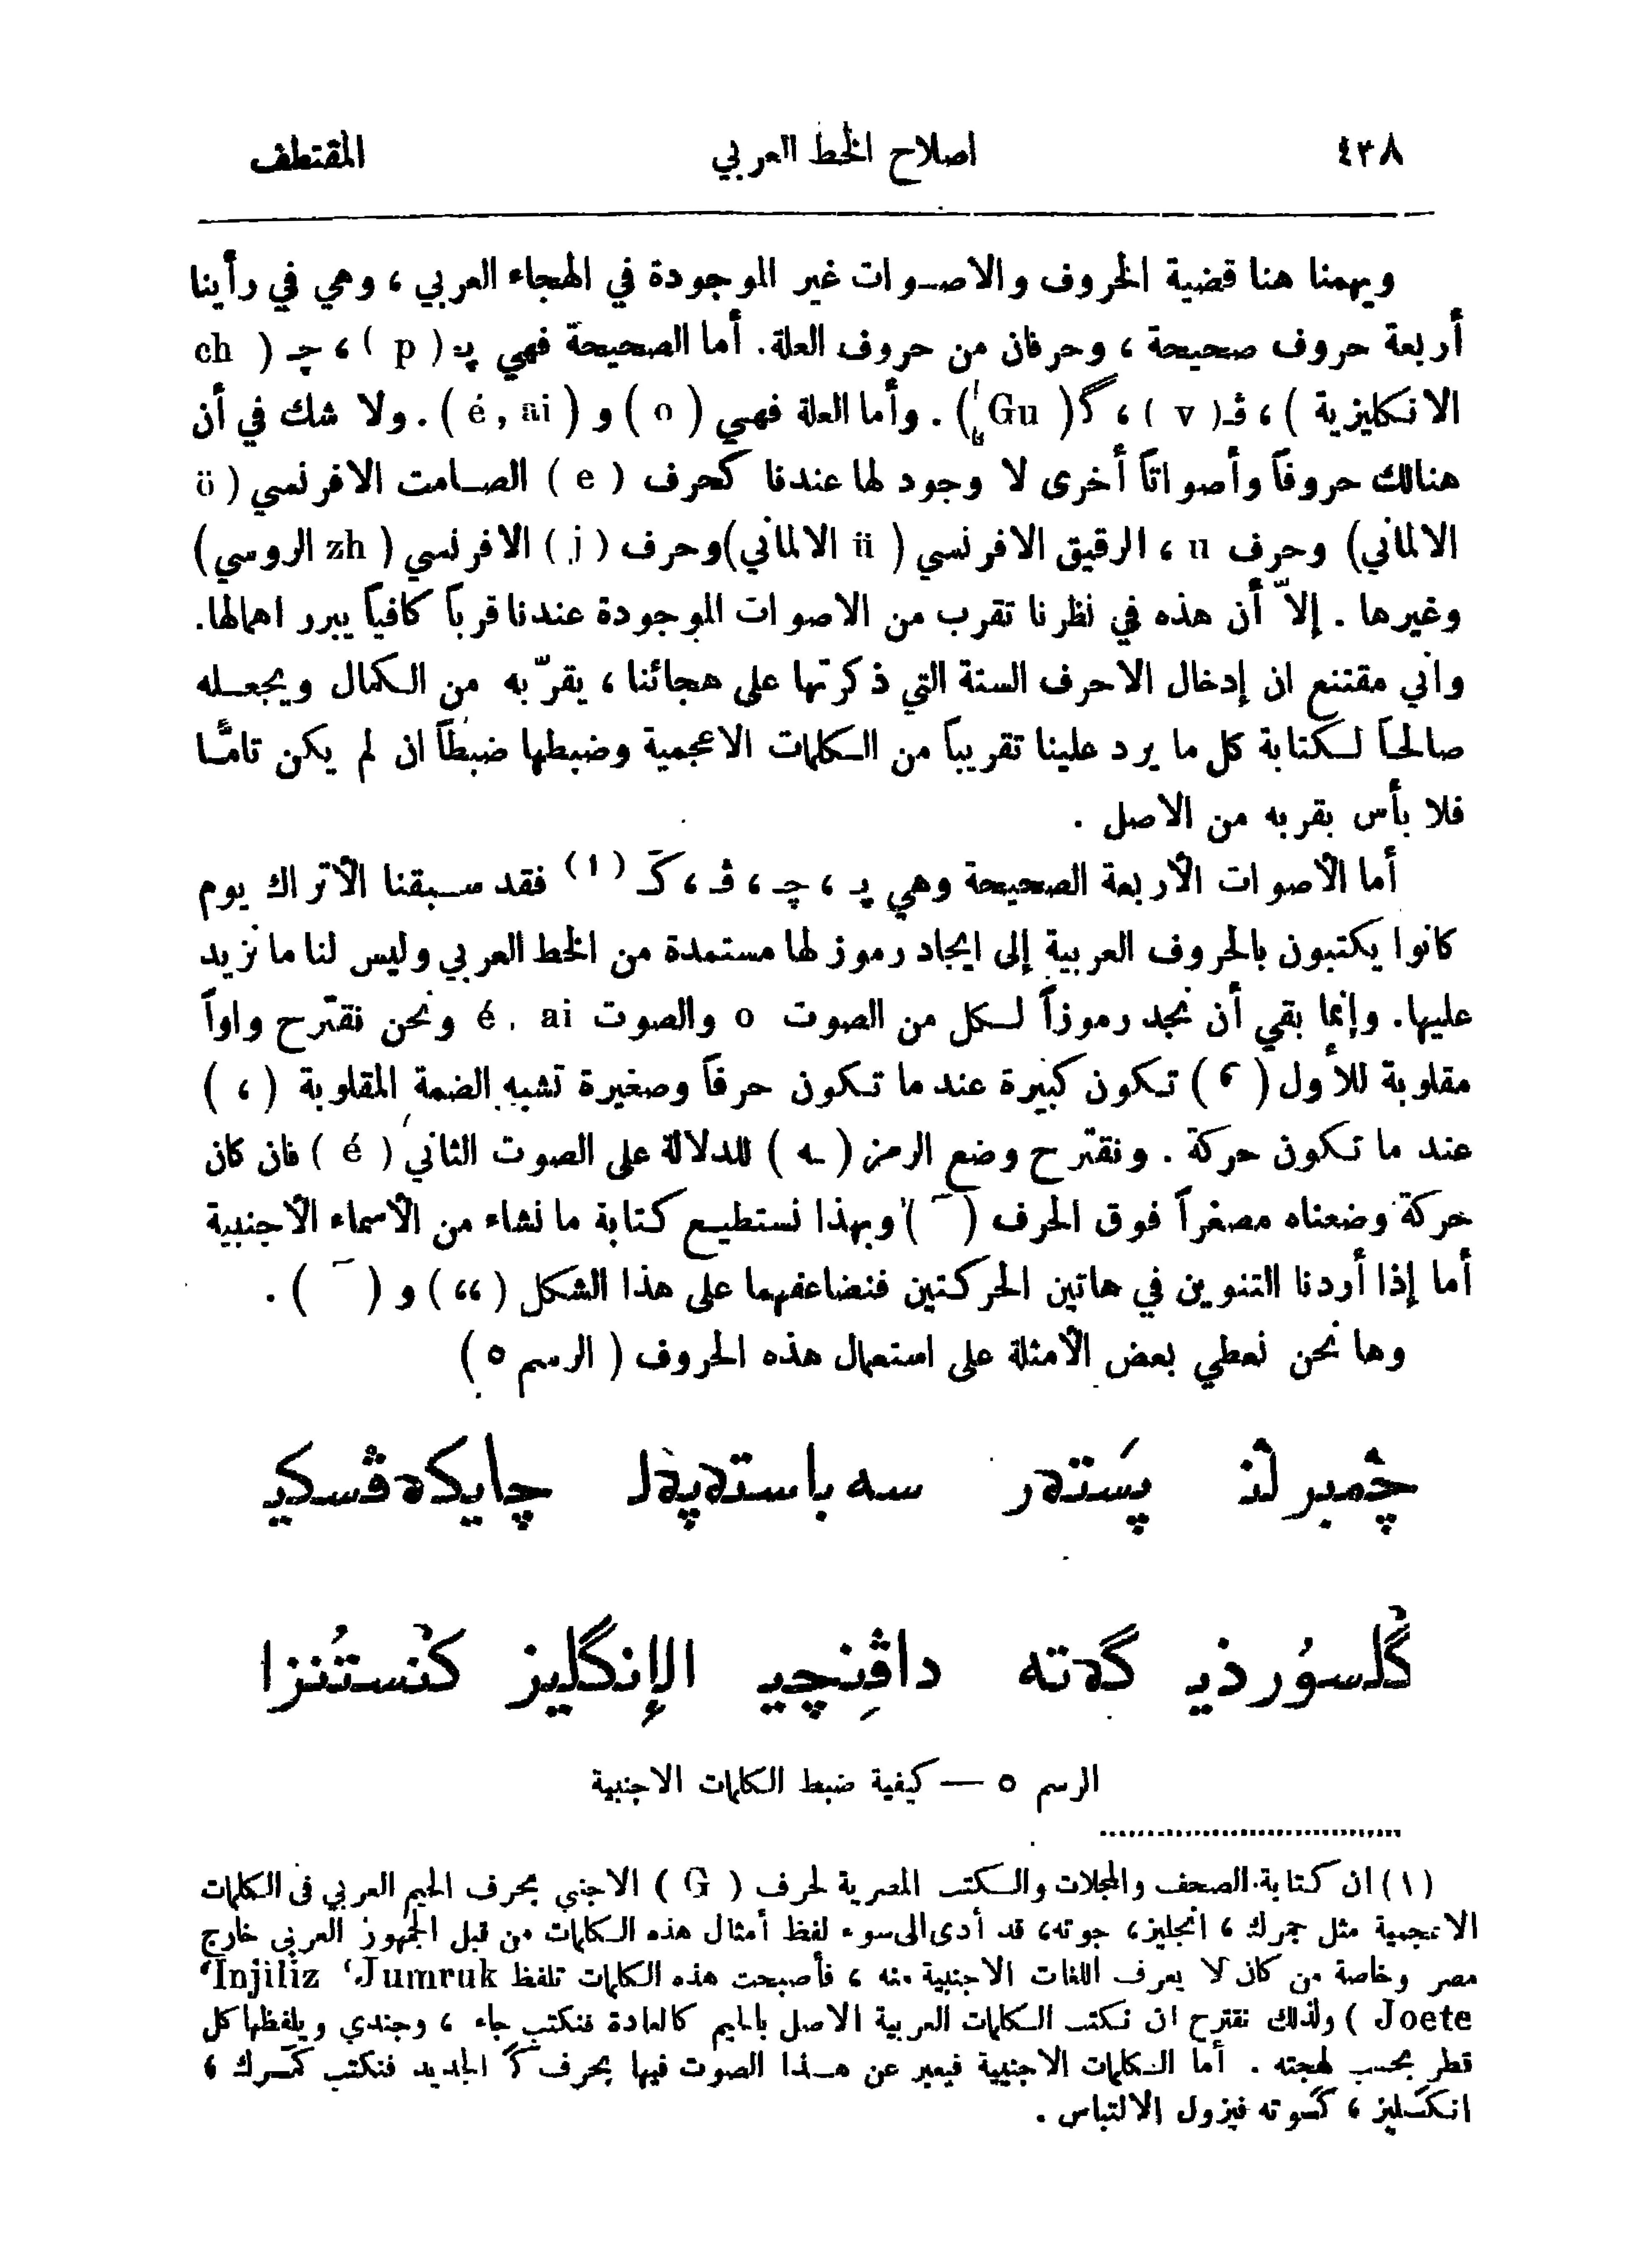 ٤٣٨ اصلاح الخط العربي المقتطف
ويهمنا هنا قضية الحروف والاصوات غير الموجودة في الهجاء العربي ، وهي في رأينا
أربعة حروف صحيحة ، وحرفان من حروف العلة. أما الصحيحة فهي پـ ( p ) ، چـ ( ch
الانكليزية ) ، ڤـ ( v ) ، گ ( Gu ) . وأما العلة فهي ( o ) و ( é , ai ) . ولا شك في أن
هنالك حروفاً وأصواتاً أخرى لا وجود لها عندنا كحرف ( e ) الصامت الافرنسي ( ö
الالماني) وحرف u ، الرقيق الافرنسي ( ü الالماني) وحرف ( j ) الافرنسي ( zh الروسي)
وغيرها . إلاّ أن هذه في نظرنا تقرب من الاصوات الموجودة عندنا قرباً كافياً يبرر اهمالها.
واني مقتنع ان إدخال الاحرف الستة التي ذكرتها على هجائنا ، يقرّبه من الكمال ويجعله
صالحاً لكتابة كل ما يرد علينا تقريباً من الكلمات الاعجمية وضبطها ضبطاً ان لم يكن تامًّا
فلا بأس بقربه من الاصل .
أما الأصوات الأربعة الصحيحة وهي پـ ، چـ ، ڤـ ، گـ (١) فقد سبقنا الأتراك يوم
كانوا يكتبون بالحروف العربية إلى ايجاد رموز لها مستمدة من الخط العربي وليس لنا ما نزيد
عليها. وإنما بقي أن نجد رموزاً لكل من الصوت o والصوت é , ai ونحن نقترح واواً
مقلوبة للأول ( ) تكون كبيرة عند ما تكون حرفاً وصغيرة تشبه الضمة المقلوبة ( ، )
عند ما تكون حركة . ونقترح وضع الرمز ( ـه ) للدلالة على الصوت الثاني ( é ) فان كان
حركة وضعناه مصغراً فوق الحرف ( ) وبهذا نستطيع كتابة ما نشاء من الأسماء الأجنبية
أما إذا أردنا التنوين في هاتين الحركتين فنضاعفهما على هذا الشكل ( ،، ) و ( ) .
وها نحن نعطي بعض الأمثلة على استعمال هذه الحروف ( الرسم ٥ )
داڤِنچي الإنگليز
الرسم ٥ — كيفية ضبط الكلمات الاجنبية
(١) ان كتابة الصحف والمجلات والكتب المصرية لحرف ( G ) الاجنبي بحرف الجيم العربي في الكلمات
الاعجمية مثل جمرك ، انجليز ، جوته ، قد أدى الى سوء لفظ أمثال هذه الكلمات من قبل الجمهور العربي خارج
مصر وخاصة من كان لا يعرف اللغات الاجنبية منه ، فأصبحت هذه الكلمات تلفظ Jumruk، Injiliz،
Joete ) ولذلك نقترح ان نكتب الكلمات العربية الاصل بالجيم كالعادة فنكتب جاء ، وجندي ويلفظها كل
قطر بحسب لهجته . أما الكلمات الاجنبية فيعبر عن هذا الصوت فيها بحرف گ الجديد فنكتب گمرك ،
انگليز ، گوته فيزول الالتباس .